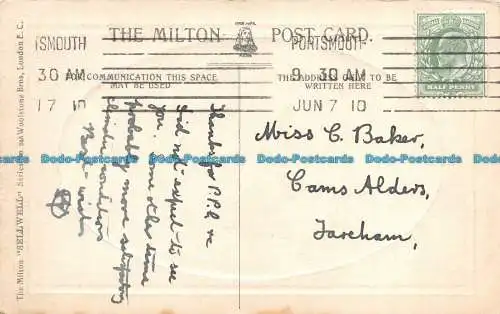 THE MILTON POST CARD.
FOR COMMUNICATION THIS SPACE
MAY BE USED
THE ADDRESS ONLY TO BE
WRITTEN HERE
TSMOUTH
30 AM
17 10
PORTSMOUTH
9 30 AM
JUN 7 10
HALF PENNY
The Milton "SELLWELL" Series Woolstone Bros, London E.C.
Thanks for P.P.C. re
Did not expect to see
you. Some other time
probably more satisfactory
climatic conditions
Best wishes
Miss C. Baker,
Cams Alders,
Fareham,
Dodo-Postcards